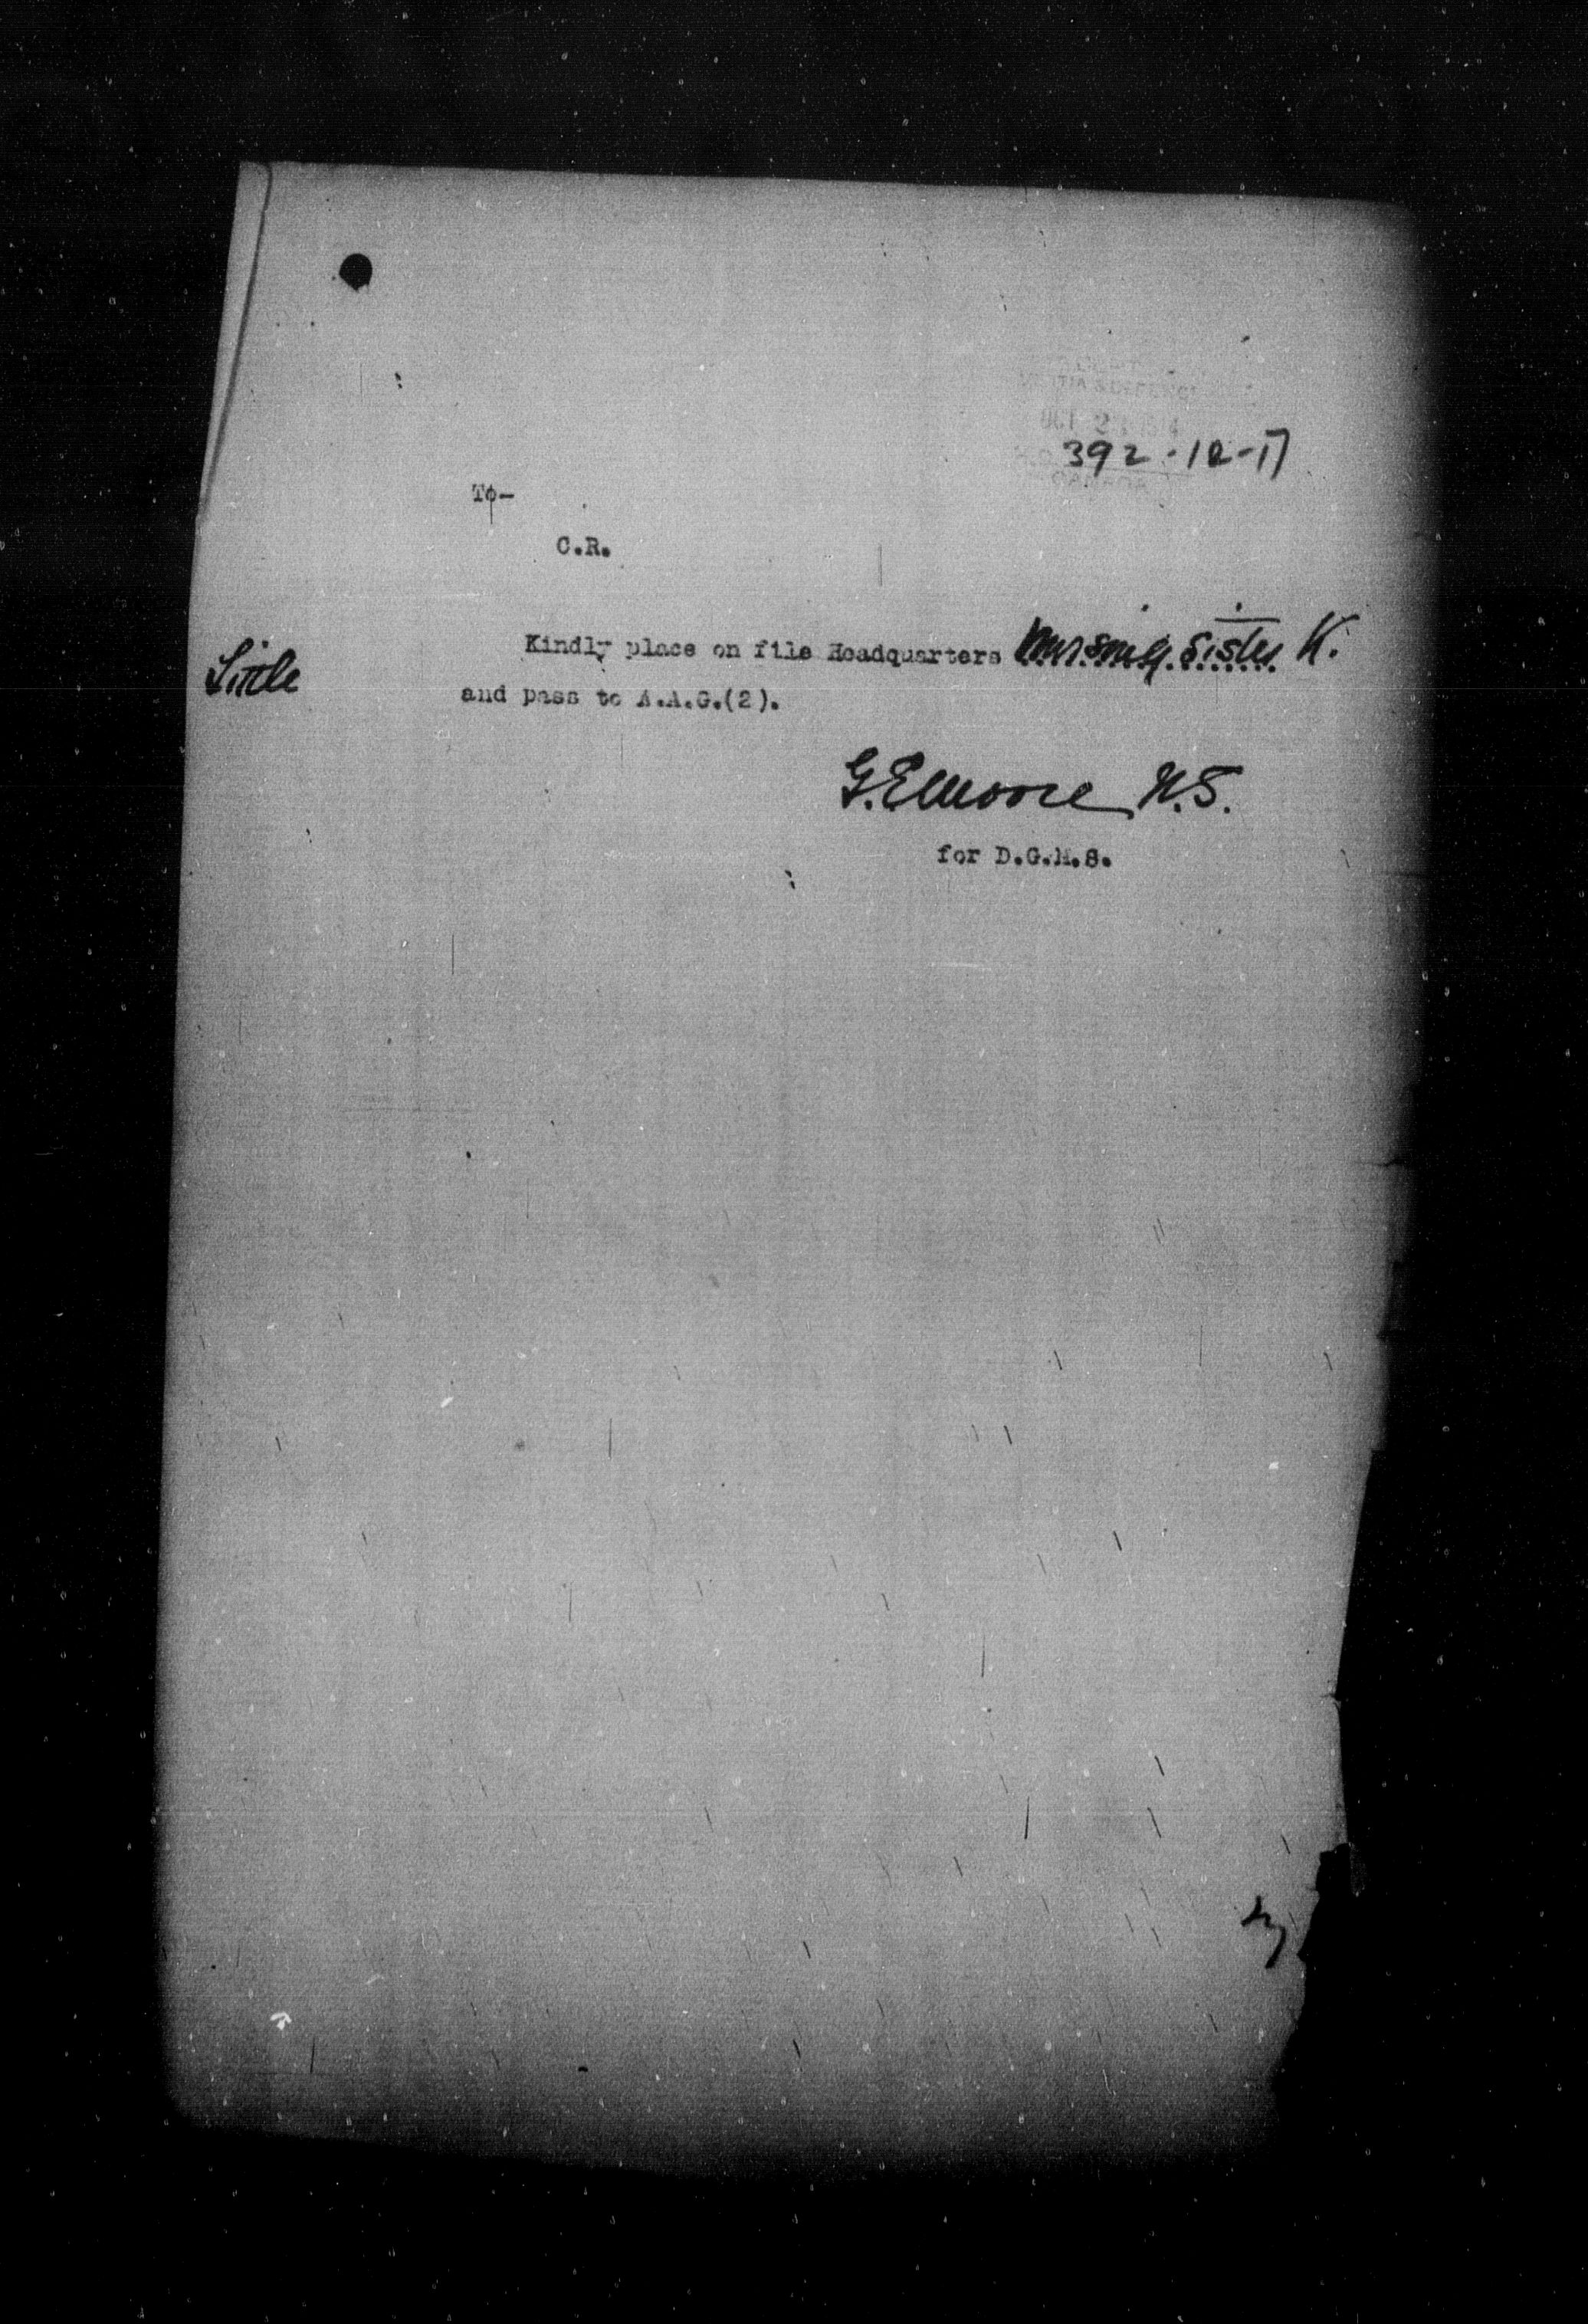 MILITIA & DEFENCE
OCT 2
392-12-17
CANADA
To-
C.R.
Kindly place on file Headquarters Nursing Sister K.
Little
and pass to A.A.G.(2).
G. E. Moore N.S.
for D.G.M.S.